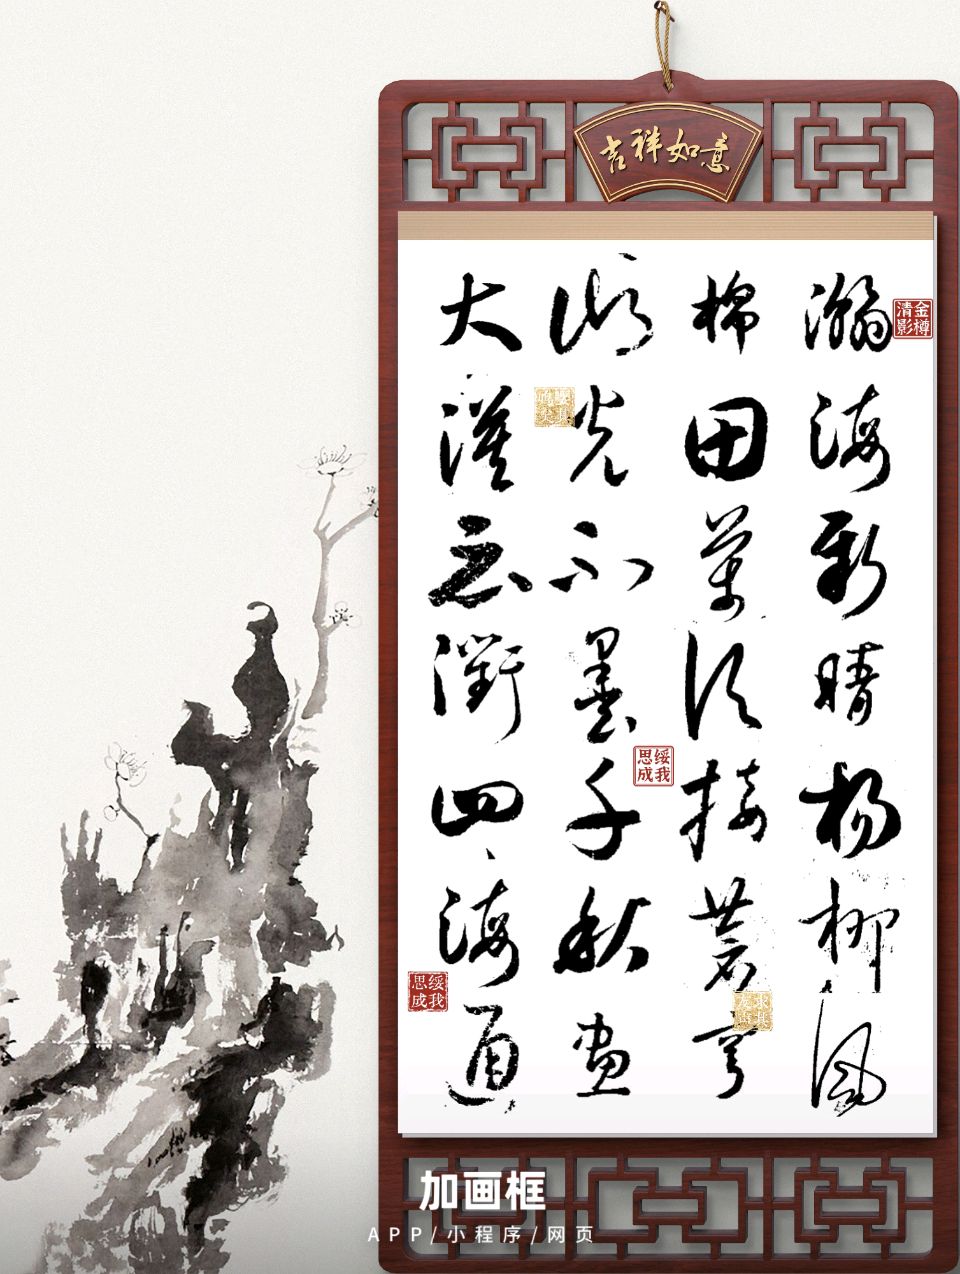 吉祥如意
瀚海新晴杨柳风
棉田萬顷接苍穹
湖光不墨千秋画
大漠云衢四海通
金樽清影
绥我思成
绥我思成
加画框
APP/小程序/网页